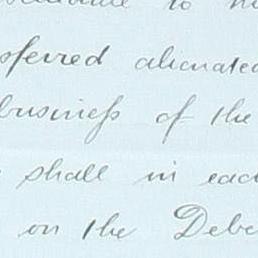 to
sferred alienated
business of the
shall in each
on the Debe